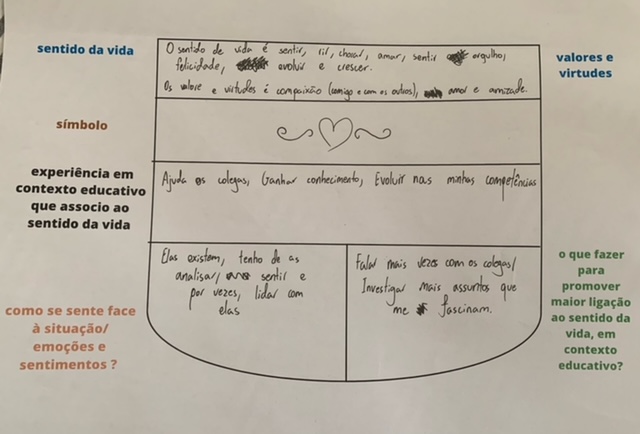 sentido da vida
O sentido de vida é sentir, rir, chorar, amar, sentir orgulho,
felicidade, evoluir e crescer.
Os valore e virtudes é compaixão (comigo e com os outros), amor e amizade.
valores e
virtudes
símbolo
experiência em
contexto educativo
que associo ao
sentido da vida
Ajuda os colegas, Ganhar conhecimento, Evoluir nas minhas competências
como se sente face
à situação/
emoções e
sentimentos ?
Elas existem, tenho de as
analisar, sentir e
por vezes, lidar com
elas
Falar mais vezes com os colegas/
Investigar mais assuntos que
me fascinam.
o que fazer
para
promover
maior ligação
ao sentido da
vida, em
contexto
educativo?